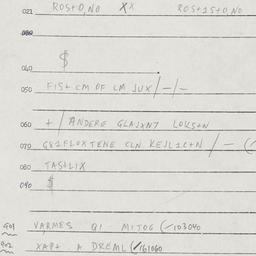 021 ROS+O,NO XX ROS+IS+O,NO
030
040 $
050 FIS+ CM OF LM JUX /-/-
060 +/ ANDERE GLAJXN7 LOKS+N
070 G81FLOXTENE CLN KEJL1C+N /-(
080 TAS+LIX
090 $
901 VARMES QI MITOG (/103040
902 XAP+ A DREML (/161060